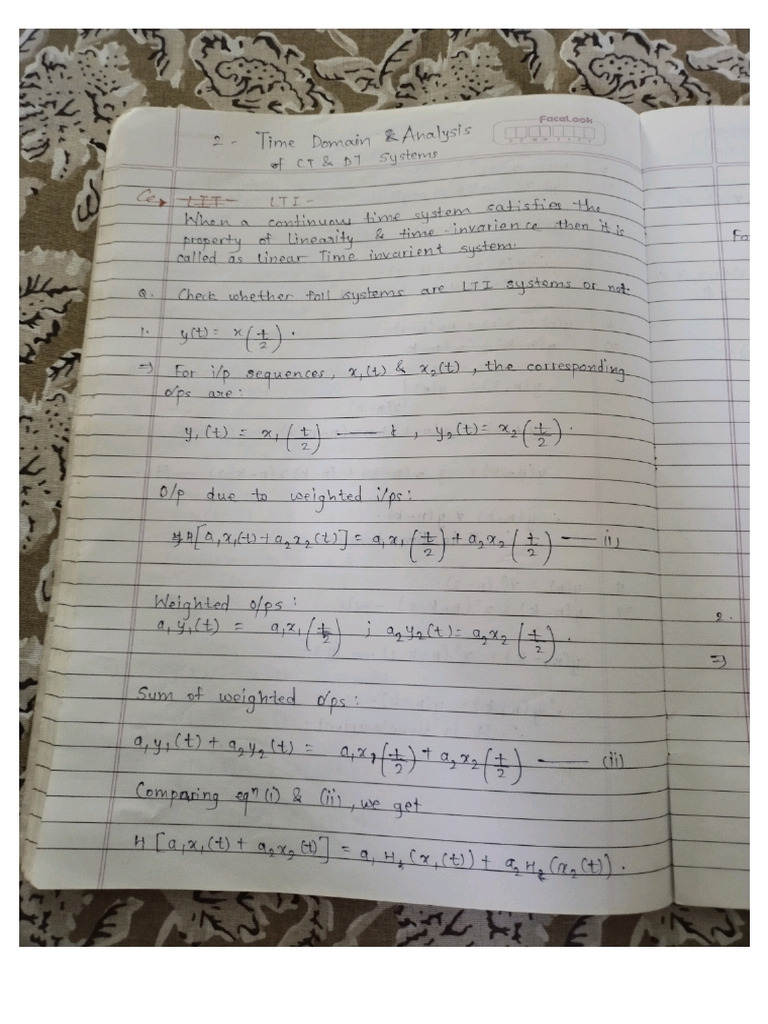 FaceLook
2 - Time Domain & Analysis
of CT & DT Systems
LIT - LTI -
When a continuous time system satisfies the
property of Linearity & time-invarience then it is
called as Linear Time invarient system.
Q. Check whether foll systems are LTI systems or not.
1. y(t) = x(t/2).
=) For i/p sequences, x₁(t) & x₂(t), the corresponding
o/ps are:
y₁(t) = x₁(t/2) —— & , y₂(t) = x₂(t/2).
O/p due to weighted i/ps:
H[a₁x₁(t) + a₂x₂(t)] = a₁x₁(t/2) + a₂x₂(t/2) —— (i)
Weighted o/ps:
a₁y₁(t) = a₁x₁(t/2) ; a₂y₂(t) = a₂x₂(t/2).
Sum of weighted o/ps:
a₁y₁(t) + a₂y₂(t) = a₁x₁(t/2) + a₂x₂(t/2) —— (ii)
Comparing eqⁿ(i) & (ii), we get
H[a₁x₁(t) + a₂x₂(t)] = a₁H₂(x₁(t)) + a₂H₂(x₂(t)).
Fo
2.
=)